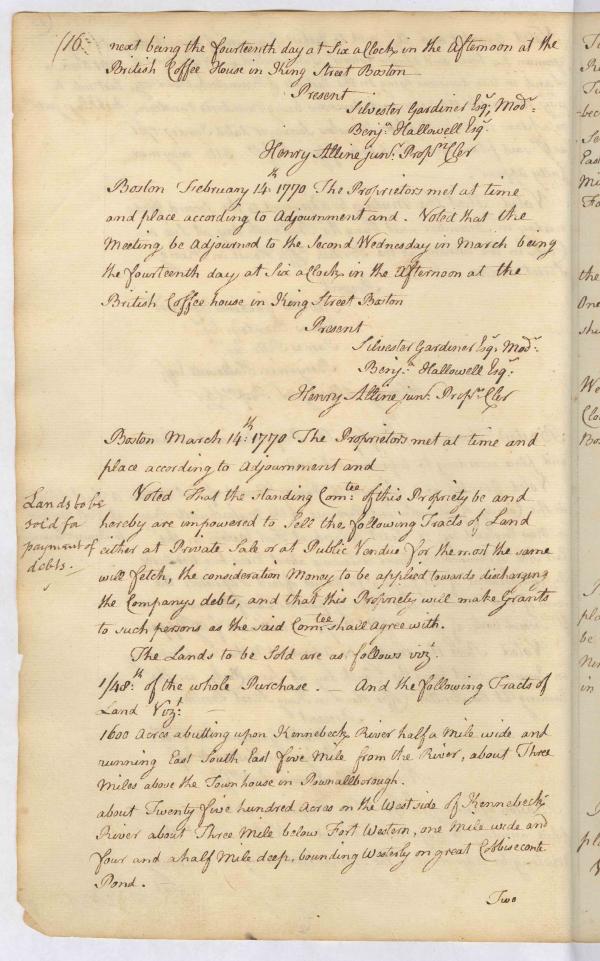 116
next being the fourteenth day at Six aClock in the Afternoon at the
British Coffee House in King Street Boston
Present
Silvester Gardiner Esqr. Modr.
Benjn. Hallowell Esqr.
Henry Alline junr. Proprs. Cler
Boston February 14th. 1770 The Proprietors met at time
and place according to Adjournment and. Voted that the
Meeting be Adjourned to the Second Wednesday in March being
the fourteenth day at Six aClock in the Afternoon at the
British Coffee house in King Street Boston
Present
Silvester Gardiner Esqr. Modr.
Benjn. Hallowell Esqr.
Henry Alline junr. Proprs. Cler
Boston March 14th. 1770 The Proprietors met at time and
place according to Adjournment and
Lands to be
sold for
payment of
debts.
Voted That the standing Comtee. of this Propriety be and
hereby are impowered to Sell the following Tracts of Land
either at Private Sale or at Public Vendue for the most the same
will fetch, the consideration Money to be applied towards discharging
the Companys debts, and that this Propriety will make Grants
to such persons as the said Comtee. shall agree with.
The Lands to be Sold are as follows vizt.
1/48th. of the whole Purchase. — And the following Tracts of
Land Vizt. —
1600 Acres abutting upon Kennebeck River half a Mile wide and
running East South East five Mile from the River, about Three
Miles above the Townhouse in Pownallborough.
about Twenty five hundred Acres on the West side of Kennebeck
River about Three Mile below Fort Western, one Mile wide and
four and a half Mile deep, bounding Westerly on great Cobbiseconte
Pond.
Two